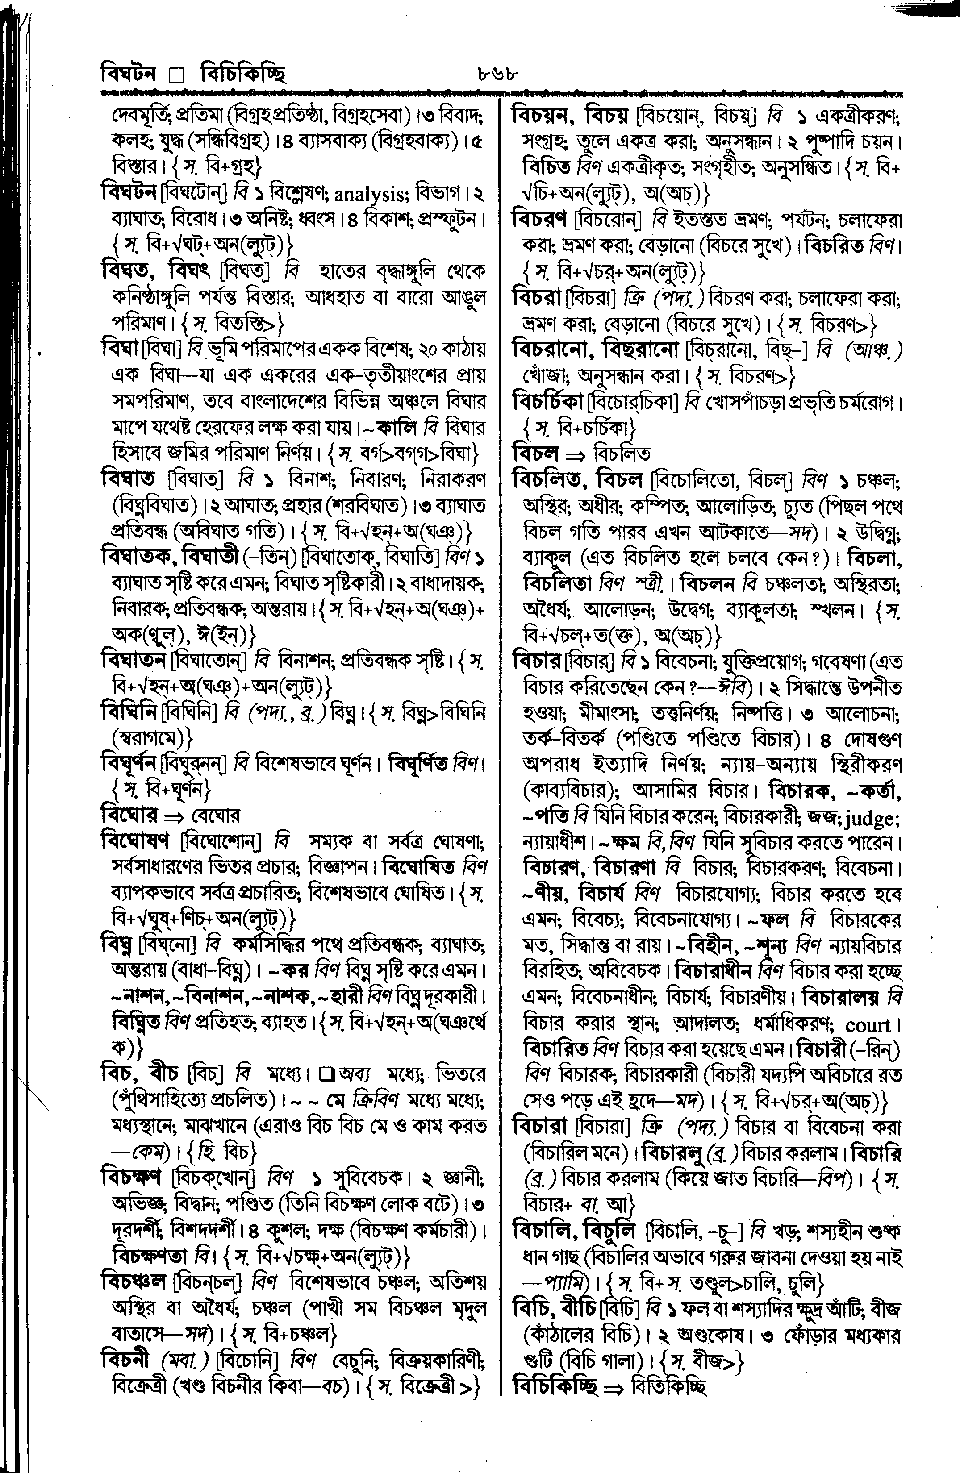 বিঘটন □ বিচিকিচ্ছি
৮৬৮
দেবমূর্তি; প্রতিমা (বিগ্রহপ্রতিষ্ঠা, বিগ্রহসেবা)। ৩ বিবাদ;
কলহ; যুদ্ধ (সন্ধিবিগ্রহ)। ৪ ব্যাসবাক্য (বিগ্রহবাক্য)। ৫
বিস্তার। {স. বি+গ্রহ}
বিঘটন [বিঘটোন্] বি ১ বিশ্লেষণ; analysis; বিভাগ। ২
ব্যাঘাত; বিরোধ। ৩ অনিষ্ট; ধ্বংস। ৪ বিকাশ; প্রস্ফুটন।
{স. বি+√ঘট্+অন(ল্যুট্)}
বিঘত, বিঘৎ [বিঘত্] বি হাতের বৃদ্ধাঙ্গুলি থেকে
কনিষ্ঠাঙ্গুলি পর্যন্ত বিস্তার; আধহাত বা বারো আঙুল
পরিমাণ। {স. বিতস্তি>}
বিঘা [বিঘা] বি ভূমি পরিমাপের একক বিশেষ; ২০ কাঠায়
এক বিঘা—যা এক একরের এক-তৃতীয়াংশের প্রায়
সমপরিমাণ, তবে বাংলাদেশের বিভিন্ন অঞ্চলে বিঘার
মাপে যথেষ্ট হেরফের লক্ষ করা যায়। ~কালি বি বিঘার
হিসাবে জমির পরিমাণ নির্ণয়। {স. বর্গ>বগ্‌গ>বিঘা}
বিঘাত [বিঘাত্] বি ১ বিনাশ; নিবারণ; নিরাকরণ
(বিঘ্নবিঘাত)। ২ আঘাত; প্রহার (শরবিঘাত)। ৩ ব্যাঘাত
প্রতিবন্ধ (অবিঘাত গতি)। {স. বি+√হন্+অ(ঘঞ্)}
বিঘাতক, বিঘাতী (-তিন্) [বিঘাতোক্, বিঘাতি] বিণ ১
ব্যাঘাত সৃষ্টি করে এমন; বিঘাত সৃষ্টিকারী। ২ বাধাদায়ক;
নিবারক; প্রতিবন্ধক; অন্তরায়। {স. বি+√হন্+অ(ঘঞ্)+
অক(ণ্বুল্), ঈ(ইন্)}
বিঘাতন [বিঘাতোন্] বি বিনাশন; প্রতিবন্ধক সৃষ্টি। {স.
বি+√হন্+অ(ঘঞ্)+অন(ল্যুট্)}
বিঘিনি [বিঘিনি] বি (পদ্য., ব্র.) বিঘ্ন। {স. বিঘ্ন>বিঘিনি
(স্বরাগমে)}
বিঘূর্ণন [বিঘুর্‌নন্] বি বিশেষভাবে ঘূর্ণন। বিঘূর্ণিত বিণ।
{স. বি+ঘূর্ণন}
বিঘোর ⇒ বেঘোর
বিঘোষণ [বিঘোশোন্] বি সম্যক বা সর্বত্র ঘোষণা;
সর্বসাধারণের ভিতর প্রচার; বিজ্ঞাপন। বিঘোষিত বিণ
ব্যাপকভাবে সর্বত্র প্রচারিত; বিশেষভাবে ঘোষিত। {স.
বি+√ঘুষ্+ণিচ্+অন(ল্যুট্)}
বিঘ্ন [বিঘ্‌নো] বি কর্মসিদ্ধির পথে প্রতিবন্ধক; ব্যাঘাত;
অন্তরায় (বাধা-বিঘ্ন)। ~কর বিণ বিঘ্ন সৃষ্টি করে এমন।
~নাশন, ~বিনাশন, ~নাশক, ~হারী বিণ বিঘ্ন দূরকারী।
বিঘ্নিত বিণ প্রতিহত; ব্যাহত। {স. বি+√হন্+অ(ঘঞর্থে
ক)}
বিচ, বীচ [বিচ্] বি মধ্যে। □ অব্য মধ্যে; ভিতরে
(পুঁথিসাহিত্যে প্রচলিত)। ~ ~ মে ক্রিবিণ মধ্যে মধ্যে;
মধ্যস্থানে; মাঝখানে (এরাও বিচ বিচ মে ও কাম করত
—কেম)। {হি. বিচ}
বিচক্ষণ [বিচক্‌খোন্] বিণ ১ সুবিবেচক। ২ জ্ঞানী;
অভিজ্ঞ; বিদ্বান; পণ্ডিত (তিনি বিচক্ষণ লোক বটে)। ৩
দূরদর্শী, বিশদদর্শী। ৪ কুশল; দক্ষ (বিচক্ষণ কর্মচারী)।
বিচক্ষণতা বি। {স. বি+√চক্ষ্+অন(ল্যুট্)}
বিচঞ্চল [বিচন্‌চল্] বিণ বিশেষভাবে চঞ্চল; অতিশয়
অস্থির বা অধৈর্য; চঞ্চল (পাখী সম বিচঞ্চল মৃদুল
বাতাসে—সদ)। {স. বি+চঞ্চল}
বিচনী (মবা.) [বিচোনি] বিণ বেচুনি; বিক্রয়কারিণী;
বিক্রেত্রী (খণ্ড বিচনীর কিবা—বচ)। {স. বিক্রেত্রী>}
বিচয়ন, বিচয় [বিচয়োন্, বিচয়্] বি ১ একত্রীকরণ;
সংগ্রহ; তুলে একত্র করা; অনুসন্ধান। ২ পুষ্পাদি চয়ন।
বিচিত বিণ একত্রীকৃত; সংগৃহীত; অনুসন্ধিত। {স. বি+
√চি+অন(ল্যুট্), অ(অচ্)}
বিচরণ [বিচরোন্] বি ইতস্তত ভ্রমণ; পর্যটন; চলাফেরা
করা; ভ্রমণ করা; বেড়ানো (বিচরে সুখে)। বিচরিত বিণ।
{স. বি+√চর্+অন(ল্যুট্)}
বিচরা [বিচরা] ক্রি (পদ্য.) বিচরণ করা; চলাফেরা করা;
ভ্রমণ করা; বেড়ানো (বিচরে সুখে)। {স. বিচরণ>}
বিচরানো, বিছরানো [বিচ্‌রানো, বিছ্-] বি (আঞ্চ.)
খোঁজা; অনুসন্ধান করা। {স. বিচরণ>}
বিচর্চিকা [বিচোর্‌চিকা] বি খোসপাঁচড়া প্রভৃতি চর্মরোগ।
{স. বি+চর্চিকা}
বিচল ⇒ বিচলিত
বিচলিত, বিচল [বিচোলিতো, বিচল্] বিণ ১ চঞ্চল;
অস্থির; অধীর; কম্পিত; আলোড়িত; চ্যুত (পিছল পথে
বিচল গতি পারব এখন আটকাতে—সদ)। ২ উদ্বিগ্ন;
ব্যাকুল (এত বিচলিত হলে চলবে কেন?)। বিচলা,
বিচলিতা বিণ স্ত্রী.। বিচলন বি চঞ্চলতা; অস্থিরতা;
অধৈর্য; আলোড়ন; উদ্বেগ; ব্যাকুলতা; স্খলন। {স.
বি+√চল্+ত(ক্ত), অ(অচ্)}
বিচার [বিচার্] বি ১ বিবেচনা; যুক্তিপ্রয়োগ; গবেষণা (এত
বিচার করিতেছেন কেন?—ঈবি)। ২ সিদ্ধান্তে উপনীত
হওয়া; মীমাংসা; তত্ত্বনির্ণয়; নিষ্পত্তি। ৩ আলোচনা;
তর্ক-বিতর্ক (পণ্ডিতে পণ্ডিতে বিচার)। ৪ দোষগুণ
অপরাধ ইত্যাদি নির্ণয়; ন্যায়-অন্যায় স্থিরীকরণ
(কাব্যবিচার); আসামির বিচার। বিচারক, ~কর্তা,
~পতি বি যিনি বিচার করেন; বিচারকারী; জজ; judge;
ন্যায়াধীশ। ~ক্ষম বি, বিণ যিনি সুবিচার করতে পারেন।
বিচারণ, বিচারণা বি বিচার; বিচারকরণ; বিবেচনা।
~ণীয়, বিচার্য বিণ বিচারযোগ্য; বিচার করতে হবে
এমন; বিবেচ্য; বিবেচনাযোগ্য। ~ফল বি বিচারকের
মত, সিদ্ধান্ত বা রায়। ~বিহীন, ~শূন্য বিণ ন্যায়বিচার
বিরহিত; অবিবেচক। বিচারাধীন বিণ বিচার করা হচ্ছে
এমন; বিবেচনাধীন; বিচার্য; বিচারণীয়। বিচারালয় বি
বিচার করার স্থান; আদালত; ধর্মাধিকরণ; court।
বিচারিত বিণ বিচার করা হয়েছে এমন। বিচারী (-রিন্)
বিণ বিচারক; বিচারকারী (বিচারী যদ্যপি অবিচারে রত
সেও পড়ে এই হ্রদে—মদ)। {স. বি+√চর+অ(অচ্)}
বিচারা [বিচারা] ক্রি (পদ্য.) বিচার বা বিবেচনা করা
(বিচারিল মনে)। বিচারলু (ব্র.) বিচার করলাম। বিচারি
(ব্র.) বিচার করলাম (কিয়ে জাত বিচারি—বিপ)। {স.
বিচার+ বা. আ}
বিচালি, বিচুলি [বিচালি, -চু-] বি খড়; শস্যহীন শুষ্ক
ধান গাছ (বিচালির অভাবে গরুর জাবনা দেওয়া হয় নাই
—প্যামি)। {স. বি+স. তণ্ডুল>চালি, চুলি}
বিচি, বীচি [বিচি] বি ১ ফল বা শস্যাদির ক্ষুদ্র আঁটি; বীজ
(কাঁঠালের বিচি)। ২ অণ্ডকোষ। ৩ ফোঁড়ার মধ্যকার
গুটি (বিচি গালা)। {স. বীজ>}
বিচিকিচ্ছি ⇒ বিতিকিচ্ছি